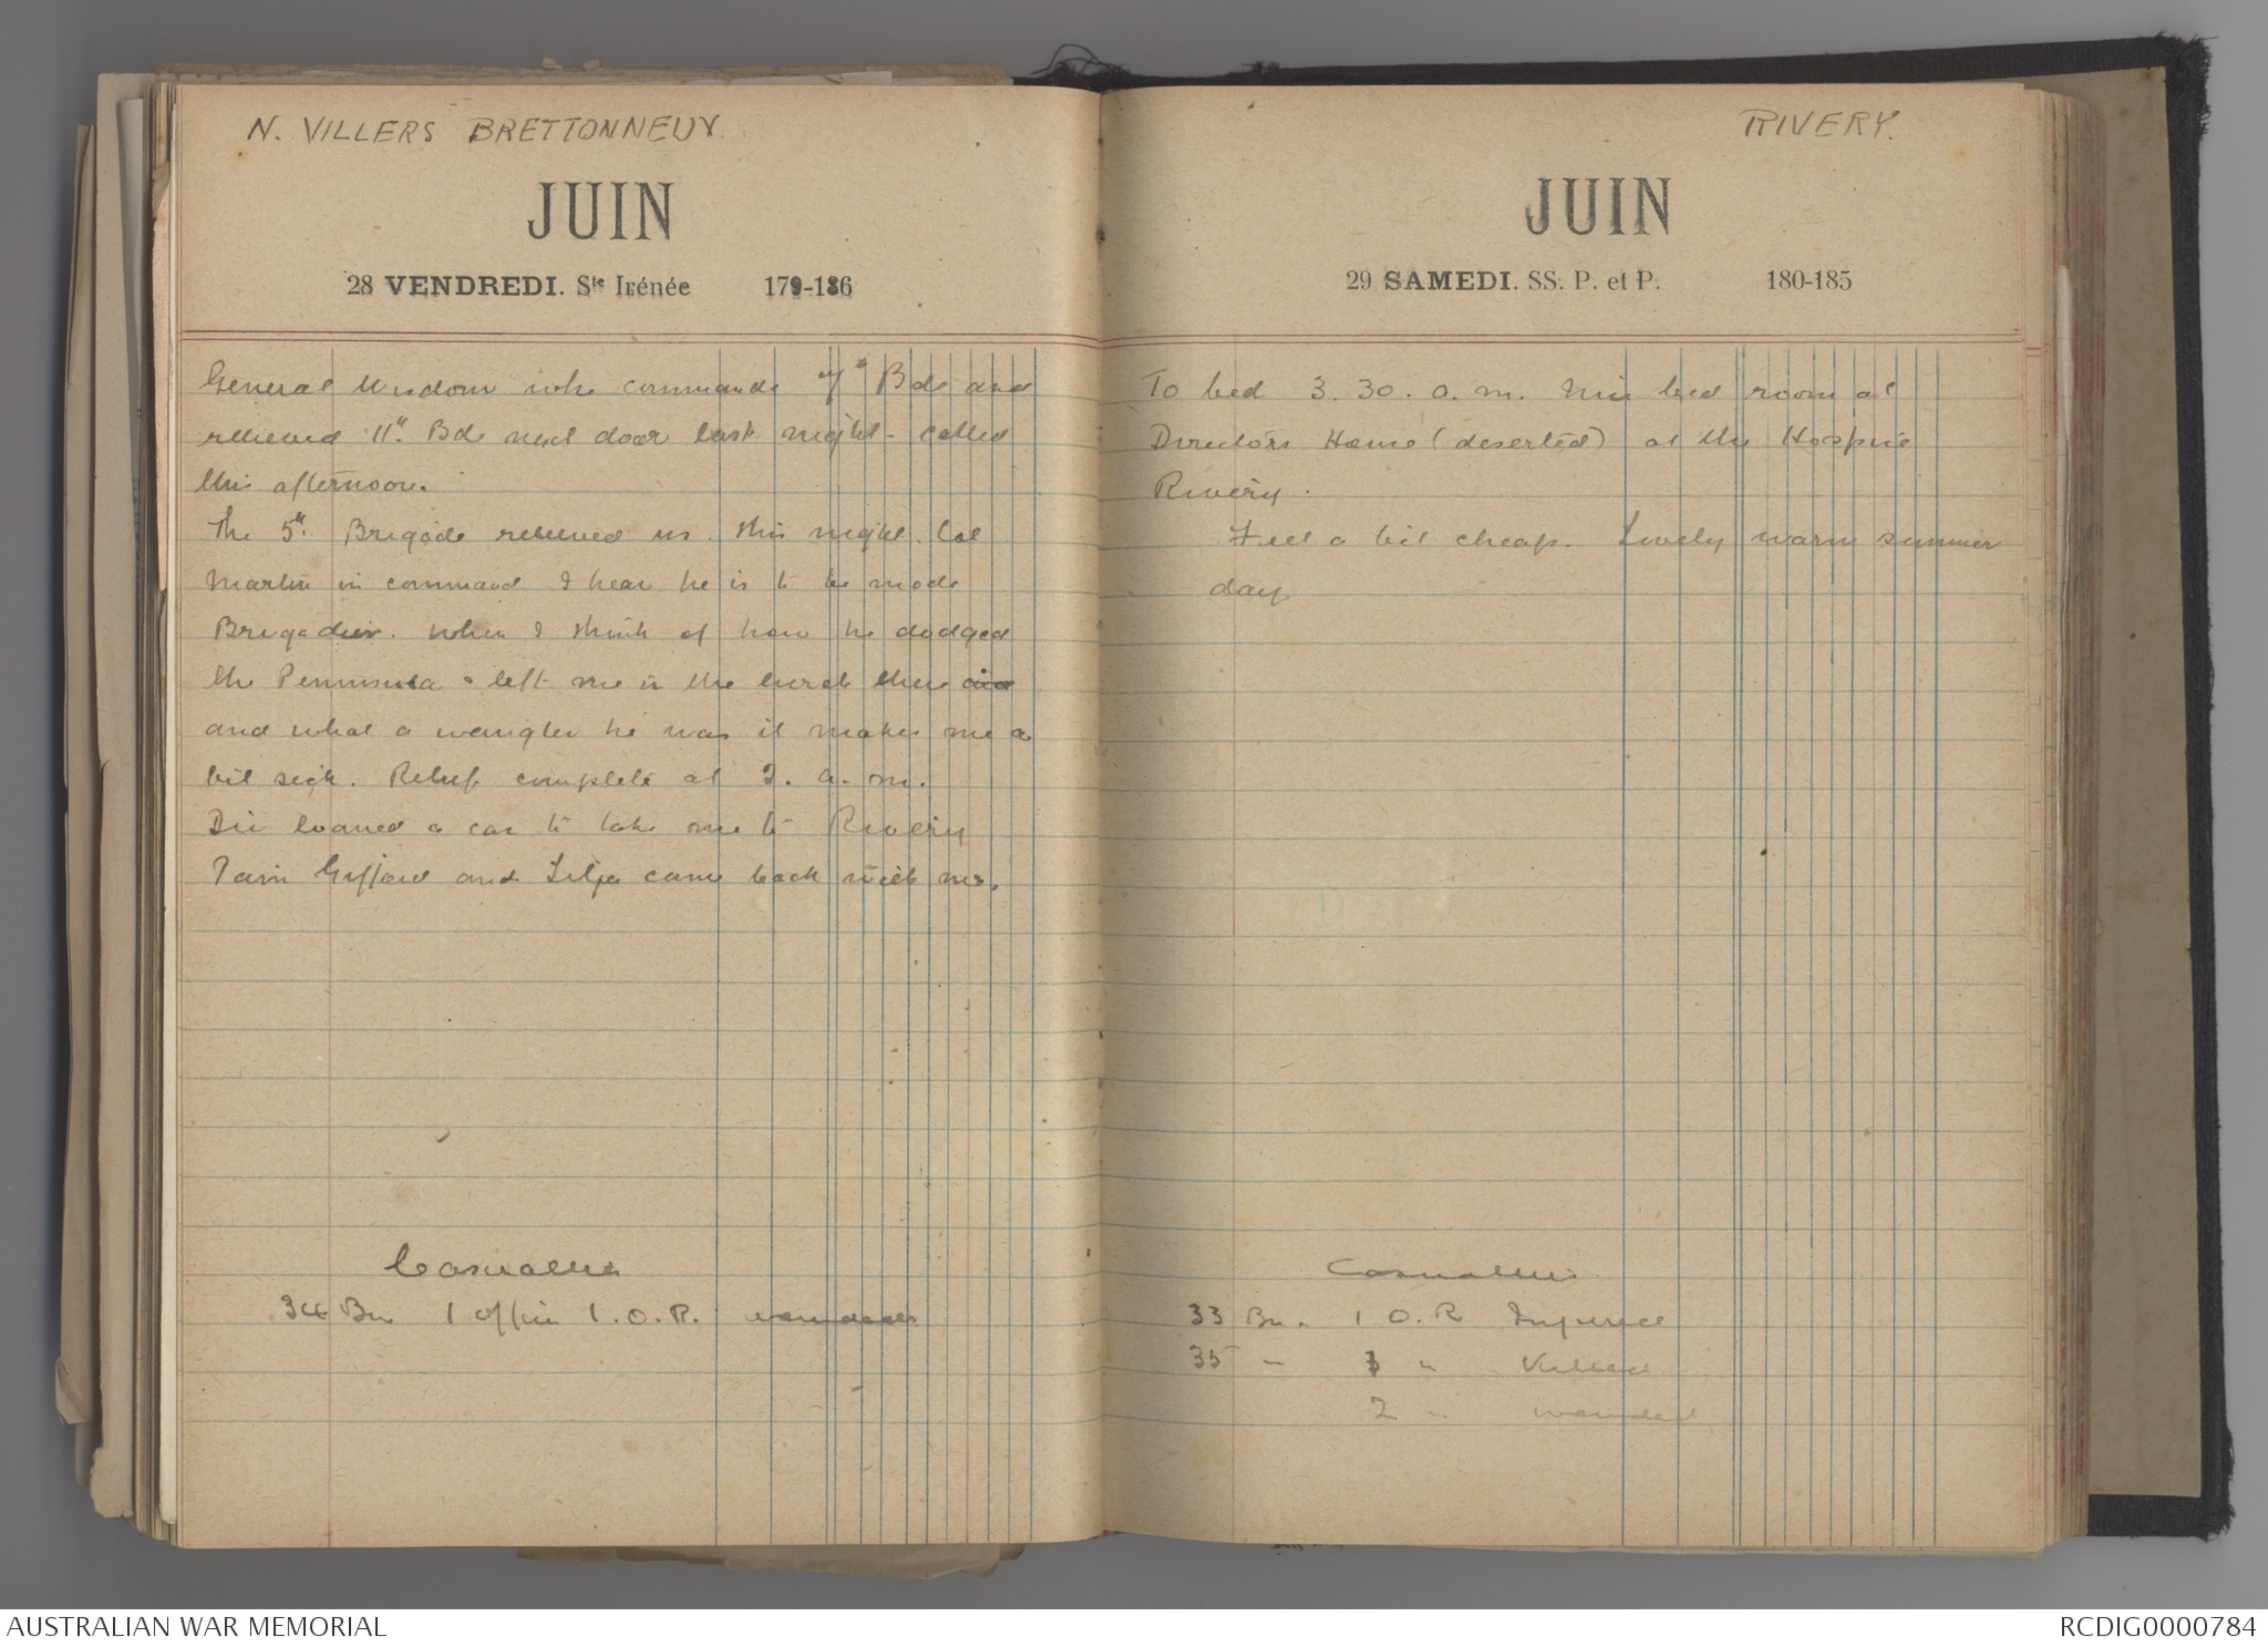 N. VILLERS BRETTONNEUX.
JUIN
28 VENDREDI. Ste Irénée 179-186
General Wisdom who commands 7th Bde and
relieved 11th Bde next door last night - called
this afternoon.
The 5th Brigade relieved us this night. Col
Martin in command I hear he is to be made
Brigadier. When I think of how he dodged
the Peninsula & left me in the lurch there
and what a wangler he was it makes me a
bit sick. Relief complete at 2. a.m.
Div loaned a car to take me to Rivery
and came back with me.
Casualties
34 Bn 1 Officer 1. O.R. wounded
RIVERY.
JUIN
29 SAMEDI. SS. P. et P. 180-185
To bed 3. 30. a.m. Nice bed room at
Directors House (deserted) at the Hospice
Rivery.
Feel a bit cheap. Lovely warm summer
day
Casualties
33 Bn. 1 O.R Injured
35 " " Killed
2 " wounded
AUSTRALIAN WAR MEMORIAL
RCDIG0000784